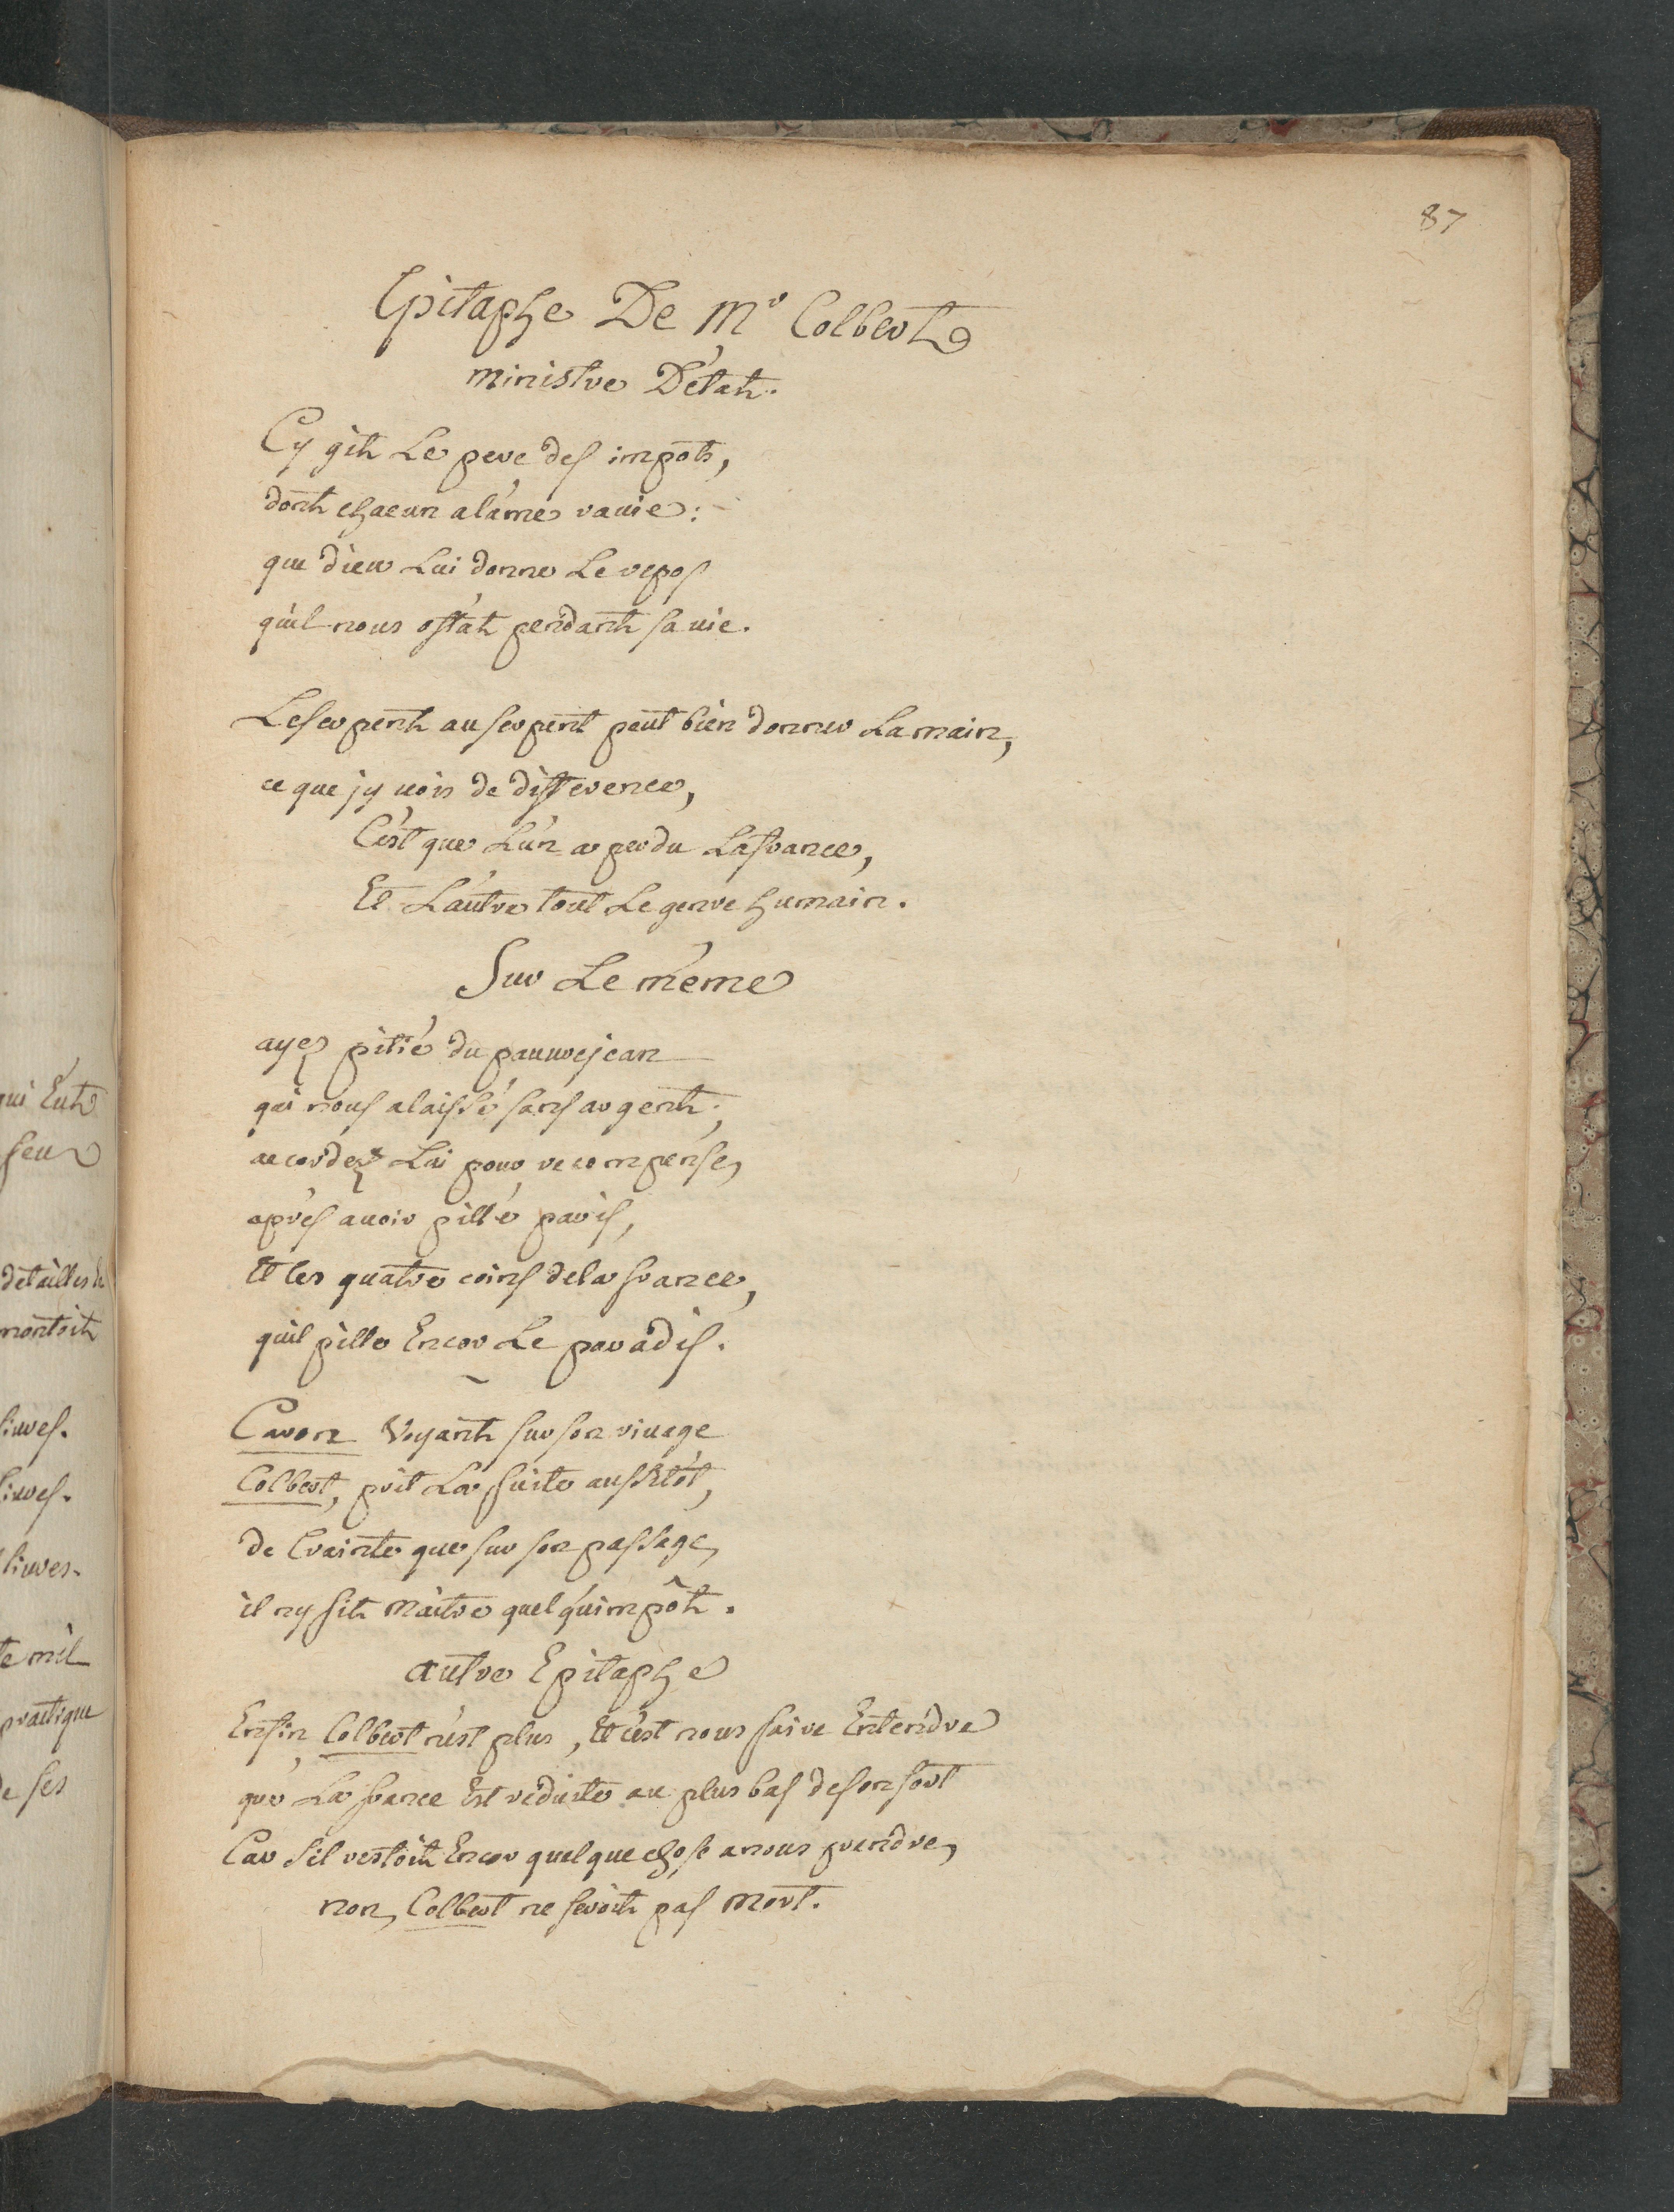 87
Epitaphe De Mr Colbert
ministre D'état.
Cy git Le pere des impots,
dont chacun a l'ame ravie:
que dieu Lui donne Le repos
qu'il nous ostat pendant sa vie.
Le serpent au serpent peut bien donner La main,
ce que j'y vois de difference,
C'est que L'un a perdu La france,
Et L'autre tout Le genre humain.
Sur Le même
ayez pitié du pauvre jean
qui nous a laissé sans argent;
accordez Lui pour recompense,
aprés avoir pillé paris,
Et les quatre coins de la france,
quil pille Encor Le paradis.
Caron Voyant sur son rivage
Colbert, prit La fuite aussitôt,
de Crainte que sur son passage,
il ny fit naître quelqu'impôt.
autre Epitaphe
Enfin Colbert n'est plus, Et c'est nous faire Entendre
que La france Est reduite au plus bas de son sort
Car s'il restoit Encor quelque chose a nous prendre,
non, Colbert ne seroit pas mort.
qui Eut
feu
detailles
montoit
livres.
livres.
livres.
te mil
pratique
de ses